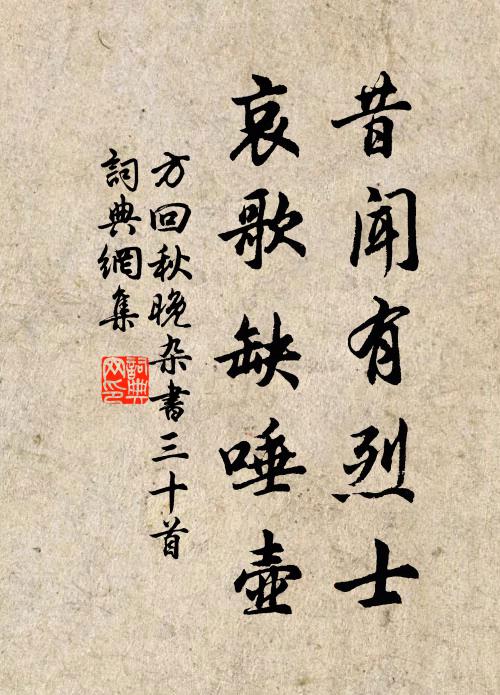 昔闻有烈士
哀歌缺唾壶
方回秋晚杂書三十首
詞典網集
詞典網印